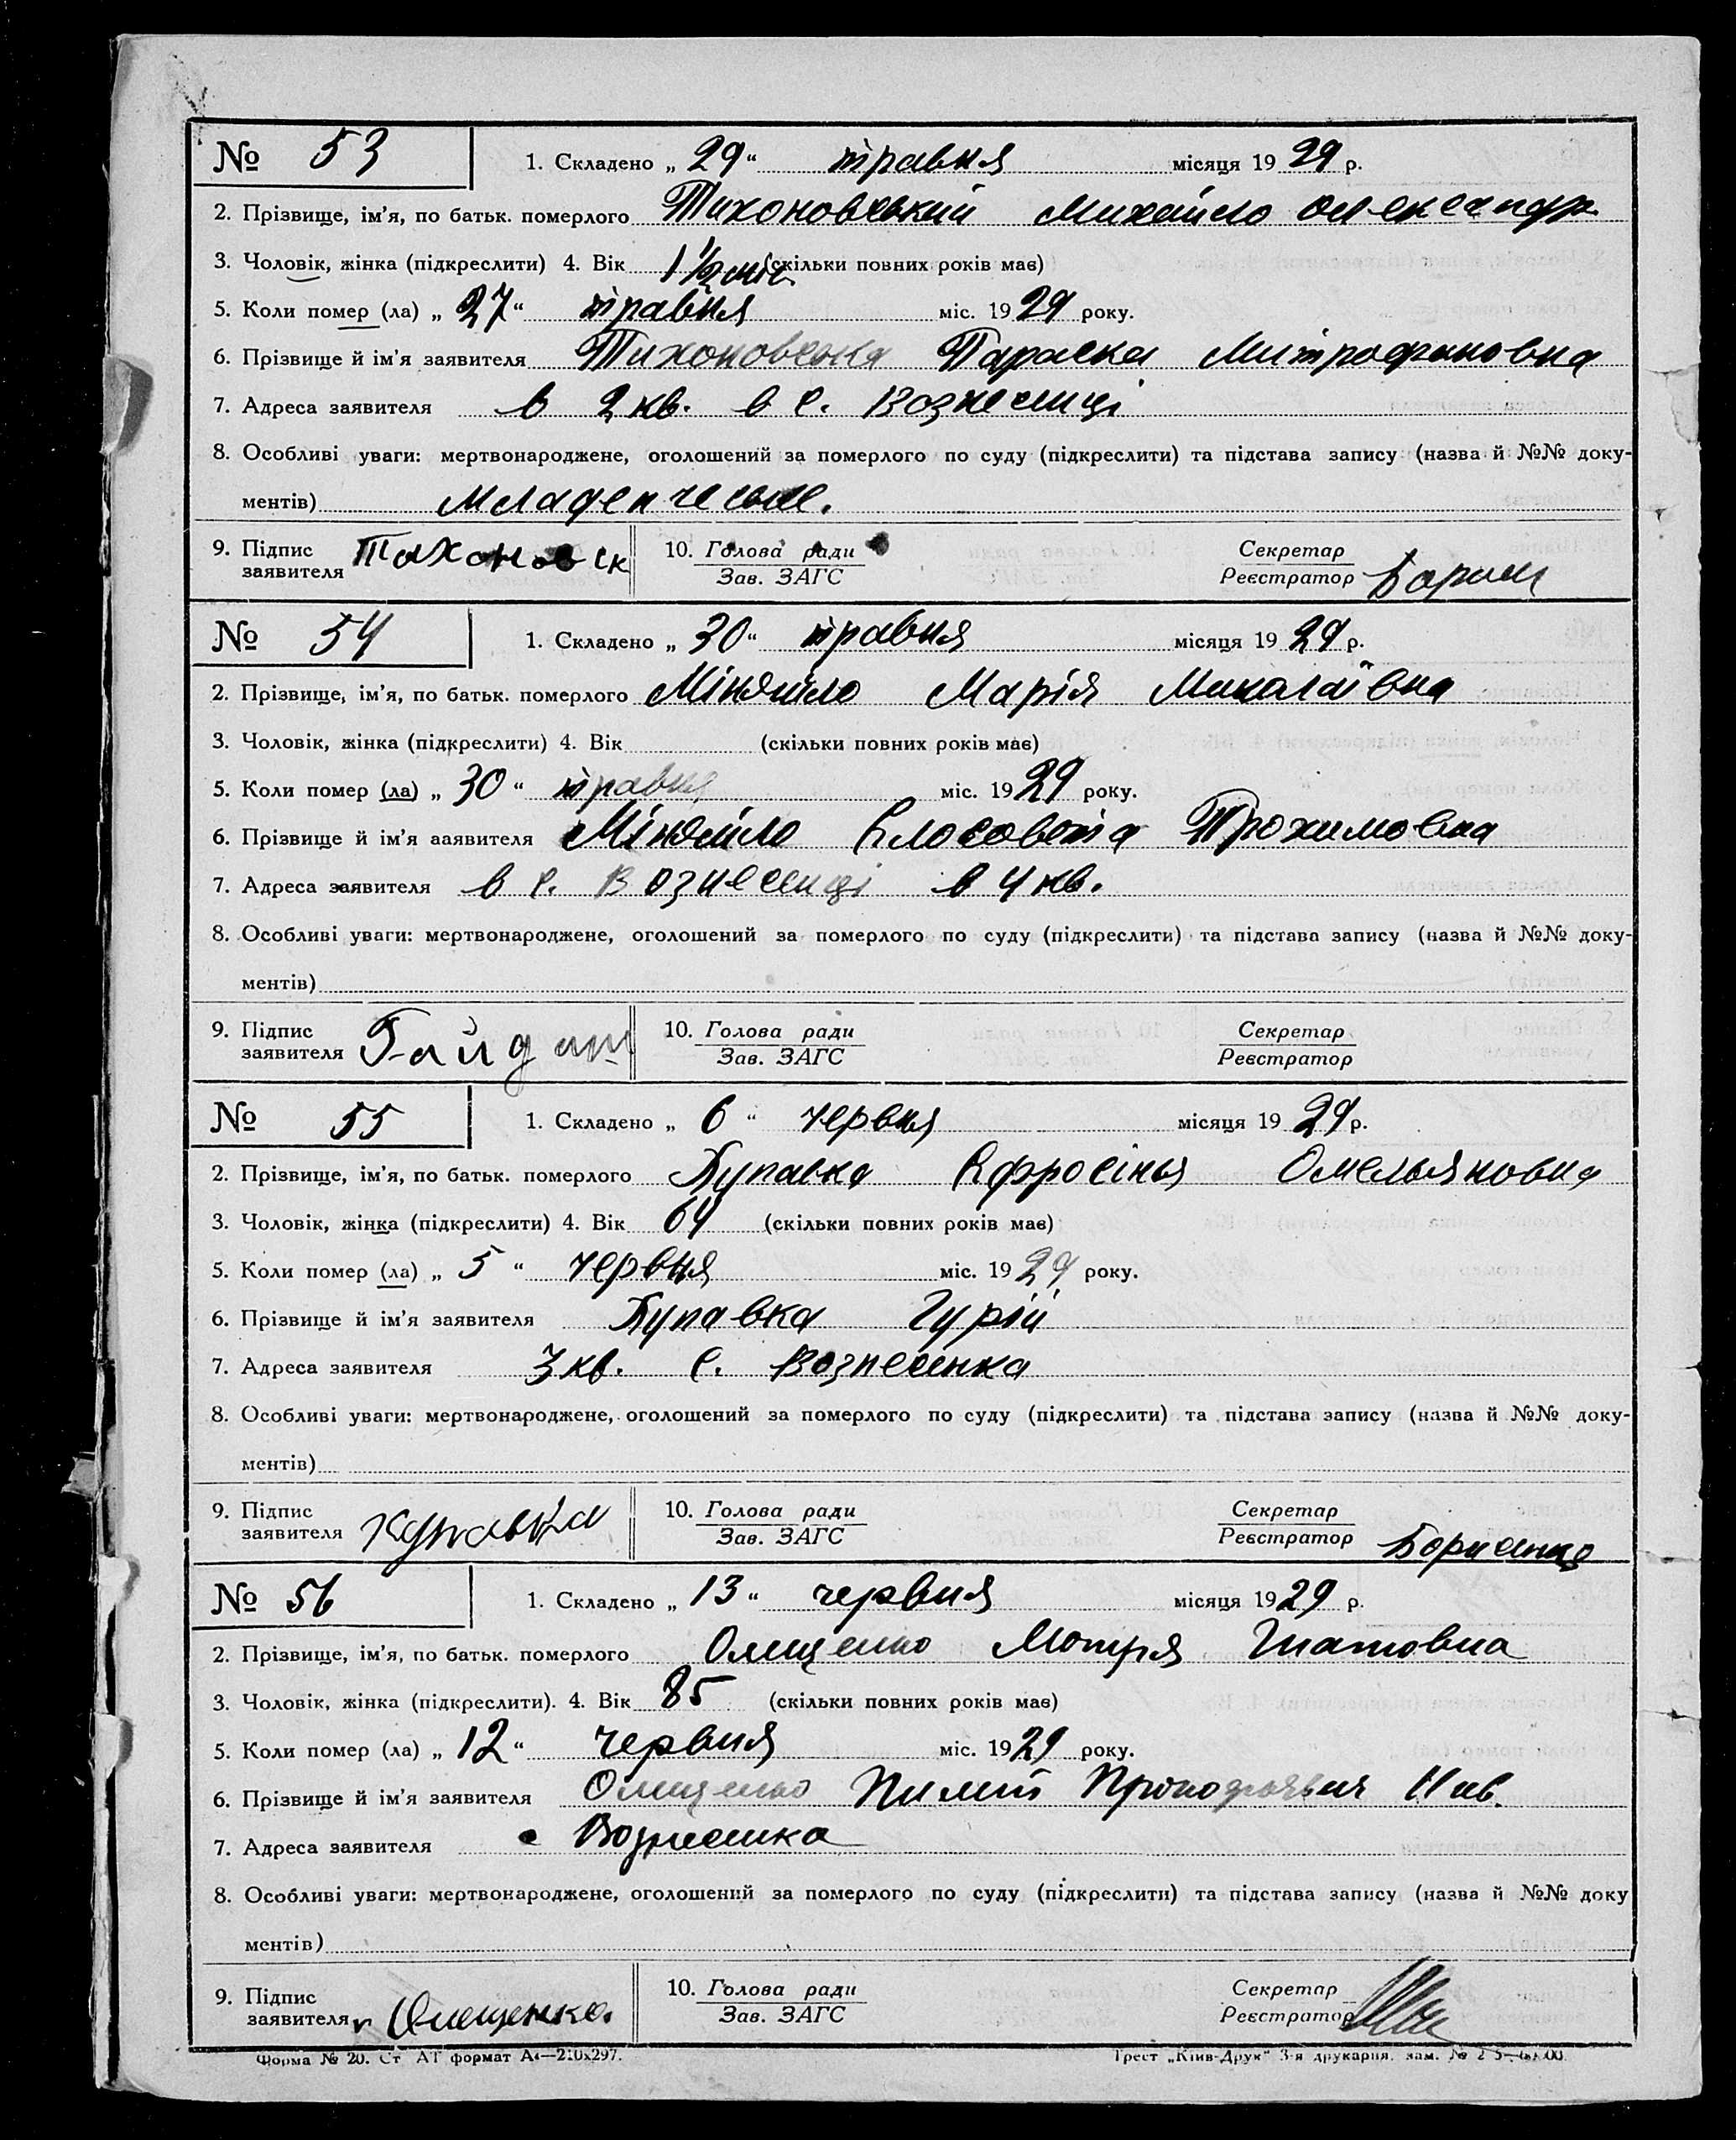 № 53 1. Складено „ 29 “ травня місяця 19 29 р.
2. Прізвище, ім'я, по батьк. померлого Тихоновський Михайло Олександр
3. Чоловік, жінка (підкреслити) 4. Вік 1 ½ міс. (скільки повних років має)
5. Коли помер (ла) „ 27 “ травня міс. 19 29 року.
6. Прізвище й ім'я заявителя Тихоновська Параска Митрофановна
7. Адреса заявителя в 2 кв. в с. Вознесенці
8. Особливі уваги: мертвонароджене, оголошений за померлого по суду (підкреслити) та підстава запису (назва й №№ доку-
ментів) Младенческие.
9. Підпис заявителя Тихоновск 10. Голова ради Зав. ЗАГС Секретар Реєстратор
№ 54 1. Складено „ 30 “ травня місяця 19 29 р.
2. Прізвище, ім'я, по батьк. померлого Міняйло Марія Миколаївна
3. Чоловік, жінка (підкреслити) 4. Вік (скільки повних років має)
5. Коли помер (ла) „ 30 “ травня міс. 19 29 року.
6. Прізвище й ім'я заявителя Міняйло Трохимовна
7. Адреса заявителя в с. Вознесенці в 4 кв.
8. Особливі уваги: мертвонароджене, оголошений за померлого по суду (підкреслити) та підстава запису (назва й №№ доку-
ментів)
9. Підпис заявителя 10. Голова ради Зав. ЗАГС Секретар Реєстратор
№ 55 1. Складено „ 6 “ червня місяця 19 29 р.
2. Прізвище, ім'я, по батьк. померлого Купавка Єфросінья Омельяновна
3. Чоловік, жінка (підкреслити) 4. Вік 64 (скільки повних років має)
5. Коли помер (ла) „ 5 “ червня міс. 19 29 року.
6. Прізвище й ім'я заявителя Купавка Гурій
7. Адреса заявителя 3 кв. с. Вознесенка
8. Особливі уваги: мертвонароджене, оголошений за померлого по суду (підкреслити) та підстава запису (назва й №№ доку-
ментів)
9. Підпис заявителя Купавка 10. Голова ради Зав. ЗАГС Секретар Реєстратор
№ 56 1. Складено „ 13 “ червня місяця 19 29 р.
2. Прізвище, ім'я, по батьк. померлого Онищенко Мотря Гнатовна
3. Чоловік, жінка (підкреслити). 4. Вік 85 (скільки повних років має)
5. Коли помер (ла) „ 12 “ червня міс. 19 29 року.
6. Прізвище й ім'я заявителя Онищенко
7. Адреса заявителя с Вознесенка
8. Особливі уваги: мертвонароджене, оголошений за померлого по суду (підкреслити) та підстава запису (назва й №№ доку
ментів)
9. Підпис заявителя Онещенко. 10. Голова ради Зав. ЗАГС Секретар Реєстратор
Форма № 20. Ст АТ формат А4—210х297. Трест „Київ-Друк“ 3-я друкарня, зам. №